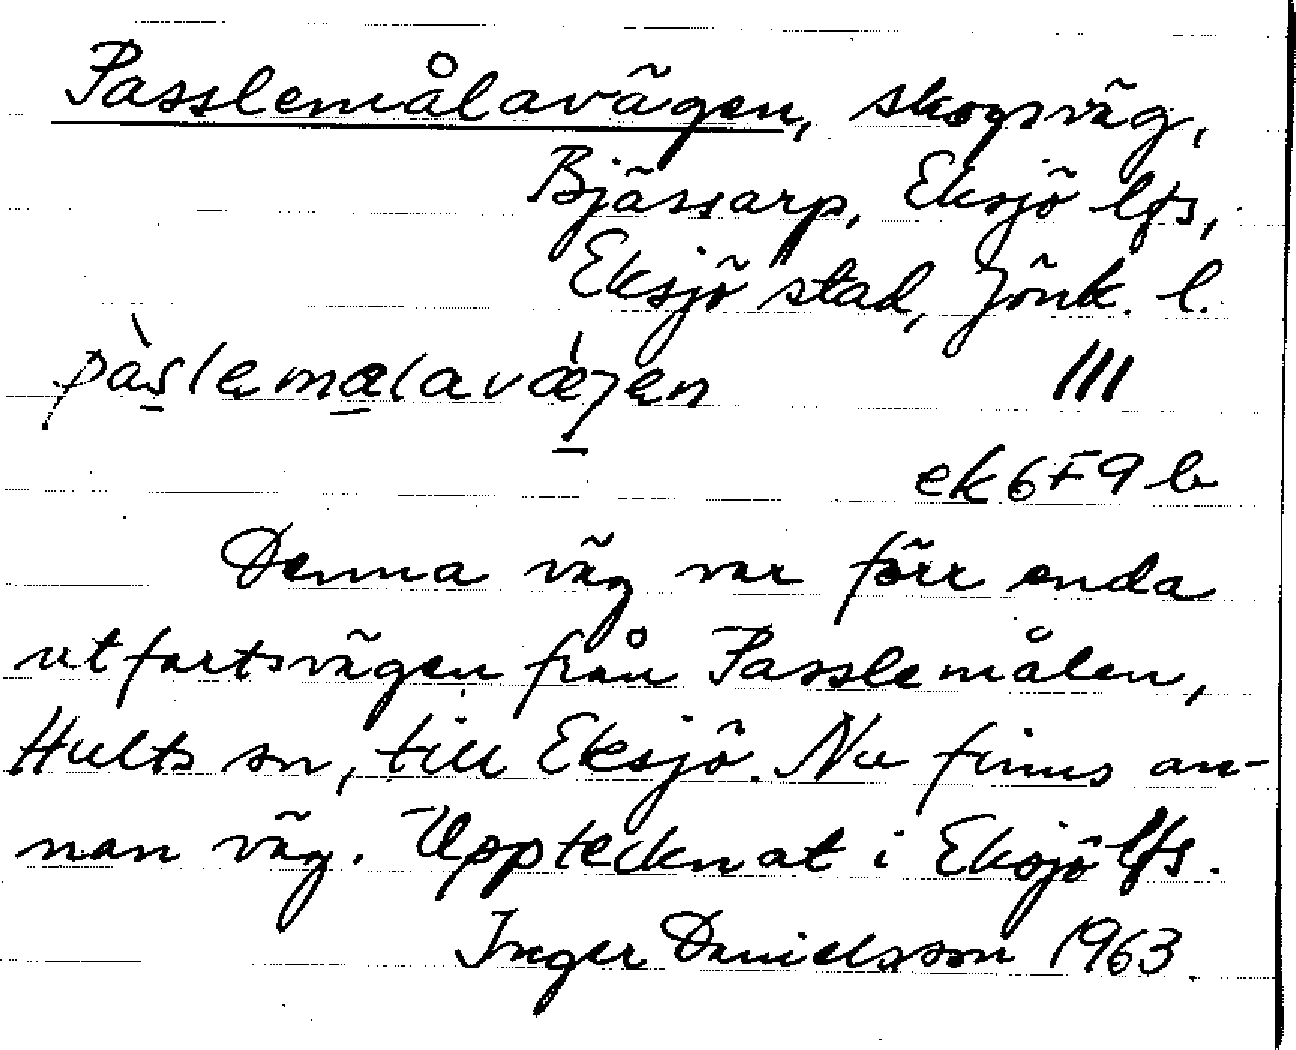 Passlemålavägen, skogsväg,
Bjässarp, Eksjö lfs,
Eksjö stad, Jönk. l.
pàslemalavæ̀jen III
ek 6F9 b
Denna väg var förr enda
utfartsvägen från Passlemålen,
Hults sn, till Eksjö. Nu finns an-
nan väg. Upptecknat i Eksjö lfs.
Inger Danielsson 1963.